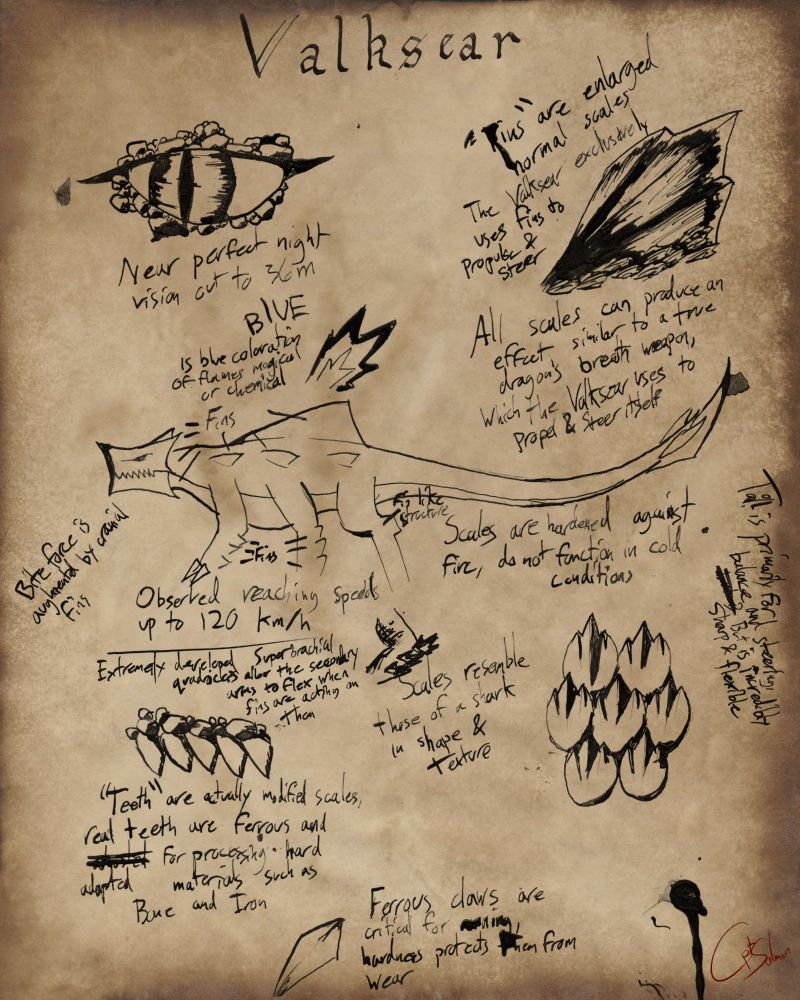 Valksear
"Fins" are enlarged
normal scales
The Valksear exclusively
uses fins to
propulse &
steer
Near perfect night
vision out to 36m
All scales can produce an
effect similar to a true
dragon's breath weapon,
which the Valksear uses to
propel & steer itself
BlUE
Is blue coloration
of flames magical
or chemical
Fins
Fin like
structure
Fins
Bite force is
augmented by cranial
fins
Scales are hardened against
fire, do not function in cold
conditions
Tail is primarily for steering
balance, But is incredibly
Sharp & flexible
Observed reaching speeds
up to 120 km/h
Extremely developed Superbrachial
quadraceps allow the secondary
arms to flex when
fins are acting on
them
Scales resemble
those of a shark
in shape &
texture
"Teeth" are actually modified scales,
real teeth are Ferrous and
for processing hard
adapted materials such as
Bone and Iron
Ferrous claws are
critical for
hardness protects them from
wear